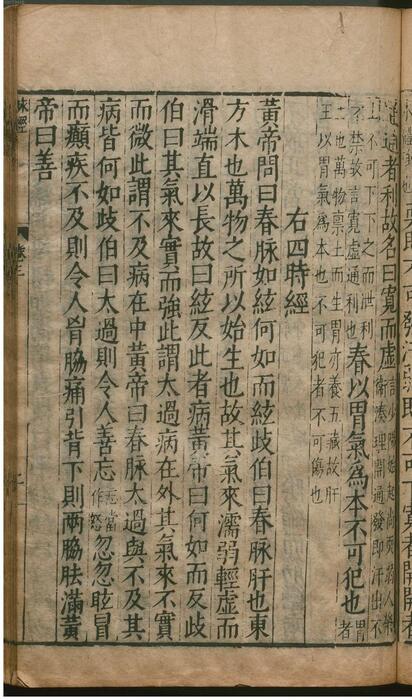 通通者利故名曰寬而虛言少陽始起尚耎弱人榮衛湊理開通發即汗出不
止不可下下之而泄利不禁故言寬虛通利也春以胃氣為本不可犯也胃者
土也萬物禀土而生胃亦養五藏故肝王以胃氣為本也不可犯者不可傷也
右四時經
黃帝問曰春脉如絃何如而絃歧伯曰春脉肝也東
方木也萬物之所以始生也故其氣來濡弱輕虛而
滑端直以長故曰絃反此者病黃帝曰何如而反歧
伯曰其氣來實而強此謂太過病在外其氣來不實
而微此謂不及病在中黃帝曰春脉太過與不及其
病皆何如歧伯曰太過則令人善忘忘當作怒忽忽眩冒
而癲疾不及則令人胷脇痛引背下則兩脇胠滿黃
帝曰善
脉經
卷三